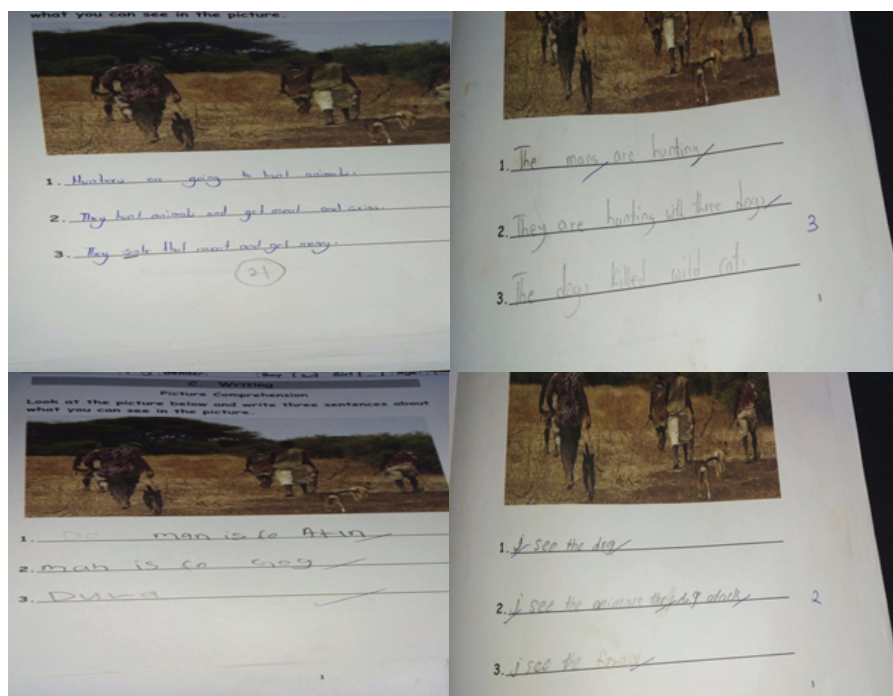 what you can see in the picture.
1. Hunters are going to hunt animals.
2. They hunt animals and get meat and skin.
3. They that meat and get
2+
1. The mans are hunting
2. They are hunting with three dogs
3
3. The dogs killed wild cat.
3
C. Writing
Picture Comprehension
Look at the picture below and write three sentences about
what you can see in the picture.
1. man is Co
2. man is Co
3.
3
1. I see the dog
2. I see the animals the dog
2
3. i see the
3